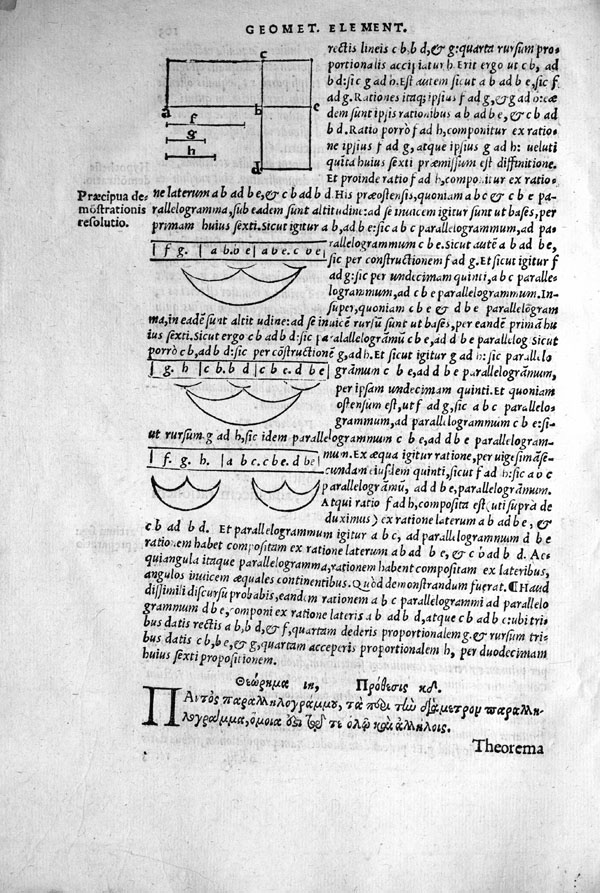 GEOMET. ELEMENT.
rectis lineis c b, b d, & g: quarta rursum pro-
portionalis accipiatur h. Erit ergo ut c b, ad
b d: sic g ad h. Est autem sicut a b ad b e, sic f
ad g. Rationes itaq; ipsius f ad g, & g ad h: eæ
dem sunt ipsis rationibus a b ad b e, & c b ad
b d. Ratio porrò f ad h, componitur ex ratio-
ne ipsius f ad g, atque ipsius g ad h: ueluti
quita huius sexti præmissum est diffinitione.
Et proinde ratio f ad h, componitur ex ratio-
c
a
b
e
f
g
h
d
Præcipua de-
mõstrationis
resolutio.
ne laterum a b ad b e, & c b ad b d. His præostensis, quoniam a b c & c b e pa-
rallelogramma, sub eadem sunt altitudine: ad se inuicem igitur sunt ut bases, per
primam huius sexti. Sicut igitur a b, ad b e: sic a b c parallelogrammum, ad pa-
rallelogrammum c b e. Sicut autẽ a b ad b e,
sic per constructionem f ad g. Et sicut igitur f
ad g: sic per undecimam quinti, a b c paralle-
logrammum, ad c b e parallelogrammum. In-
super, quoniam c b e & d b e parallelogrã
f g. | a b. b e | a b c. c b e |
ma, in eadẽ sunt altitudine: ad se inuicẽ rursũ sunt ut bases, per eandẽ primã hu
ius sexti. Sicut ergo c b ad b d: sic paralallelogrãmũ c b e, ad d b e parallelog. Sicut
porrò c b, ad b d: sic per cõstructionẽ g, ad h. Et sicut igitur g ad h: sic parallelo
grãmum c b e, ad d b e parallelogrammum,
per ipsam undecimam quinti. Et quoniam
ostensum est, ut f ad g, sic a b c parallelo-
grammum, ad parallelogrammum c b e: si-
g. h | c b. b d | c b e. d b e |
ut rursum g ad h, sic idem parallelogrammum c b e, ad d b e parallelogram-
mum. Ex æqua igitur ratione, per uigesimãse-
cundam eiusdem quinti, sicut f ad h: sic a b c
parallelogrãmũ, ad d b e, parallelogrammum.
Atqui ratio f ad h, composita est (uti supra de
duximus) ex ratione laterum a b ad b e, &
| f. g. h. | a b c. c b e. d b e |
c b ad b d. Et parallelogrammum igitur a b c, ad parallelogrammum d b e
rationem habet compositam ex ratione laterum a b ad b e, & c b ad b d. Aeq
quiangula itaque parallelogramma, rationem habent compositam ex lateribus,
angulos inuicem æquales continentibus. Quod demonstrandum fuerat. ¶ Haud
dissimili discursu probabis, eandem rationem a b c parallelogrammi ad parallelo
grammum d b e, componi ex ratione lateris a b ad b d, atque c b ad b e: ubi tri-
bus datis rectis a b, b d, & f, quartam dederis proportionalem g. & rursum tri-
bus datis c b, b e, & g, quartam acceperis proportionalem h, per duodecimam
huius sexti propositionem.
Θεώρημα ιη, Πρόθεσις κδ.
Παντὸς παραλληλογράμμου, τὰ περὶ τὴν διάμετρον παραλλη-
λόγραμμα, ὅμοιά ἐστι τῷ τε ὅλῳ καὶ ἀλλήλοις.
Theorema